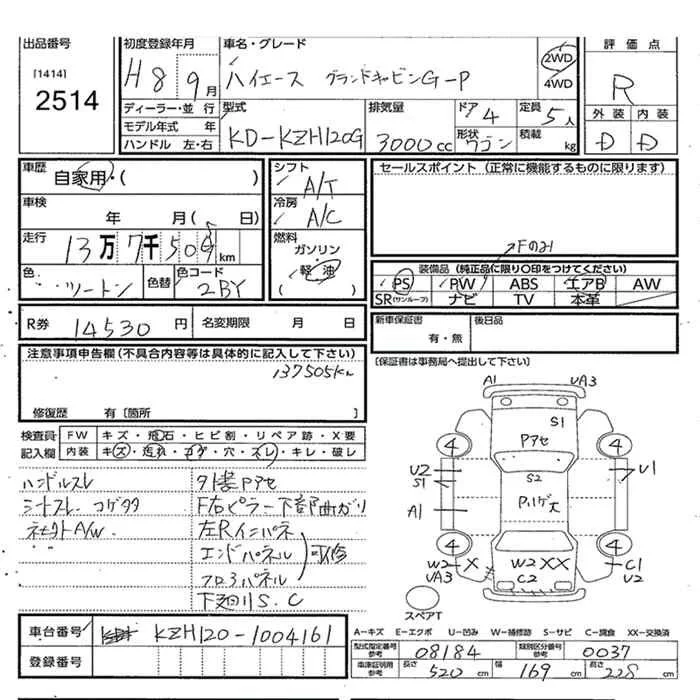 出品番号
[1414]
2514
初度登録年月
H8年9月
車名・グレード
ハイエース グランドキャビンG-P
2WD
4WD
評価点
R
ディーラー・並行
モデル年式 年
ハンドル 左・右
型式
KD-KZH120G
排気量
3000cc
ドア
4
形状
ワゴン
定員
5人
積載
kg
外装 内装
D D
車歴
自家用・( )
車検
年 月( 日)
走行
13万7千505km
色
ツートン
色替
色コード
2BY
シフト
A/T
冷房
A/C
燃料
ガソリン
軽油
( )
セールスポイント (正常に機能するものに限ります)
Fのみ
装備品 (純正品に限り○印をつけてください)
PS PW ABS エアB AW
SR(サンルーフ) ナビ TV 本革
R券 14530 円 名変期限 月 日
新車保証書
有・無
後日品
[保証書は事務局へ提出して下さい]
注意事項申告欄(不具合内容等は具体的に記入して下さい)
137505km
修復歴 有[箇所 ]
検査員
記入欄
FW キズ・飛石・ヒビ割・リペア跡・X要
内装 キズ・汚れ・コゲ・穴・スレ・キレ・破レ
ハンドルスレ
シートスレ コゲタタ
ネセクトA/W
外装Pアセ
F右ピラー下部曲ガリ
左Rインパネ
エンドパネル
フロアパネル
可修
下廻りS.C
A1
UA3
S1
Pアセ
4
4
U2
S1
U1
S2
P.ハゲ大
A1
4
4
W2
UA3
X
W2XX
C2
C1
U2
スペアT
車台番号 KZH120-1004161
登録番号
A-キズ E-エクボ U-凹み W-補修跡 S-サビ C-腐食 XX-交換済
型式指定番号
参考
08184
類別区分番号
参考
0037
車庫証明用
参考
長さ
520cm
幅
169cm
高さ
228cm